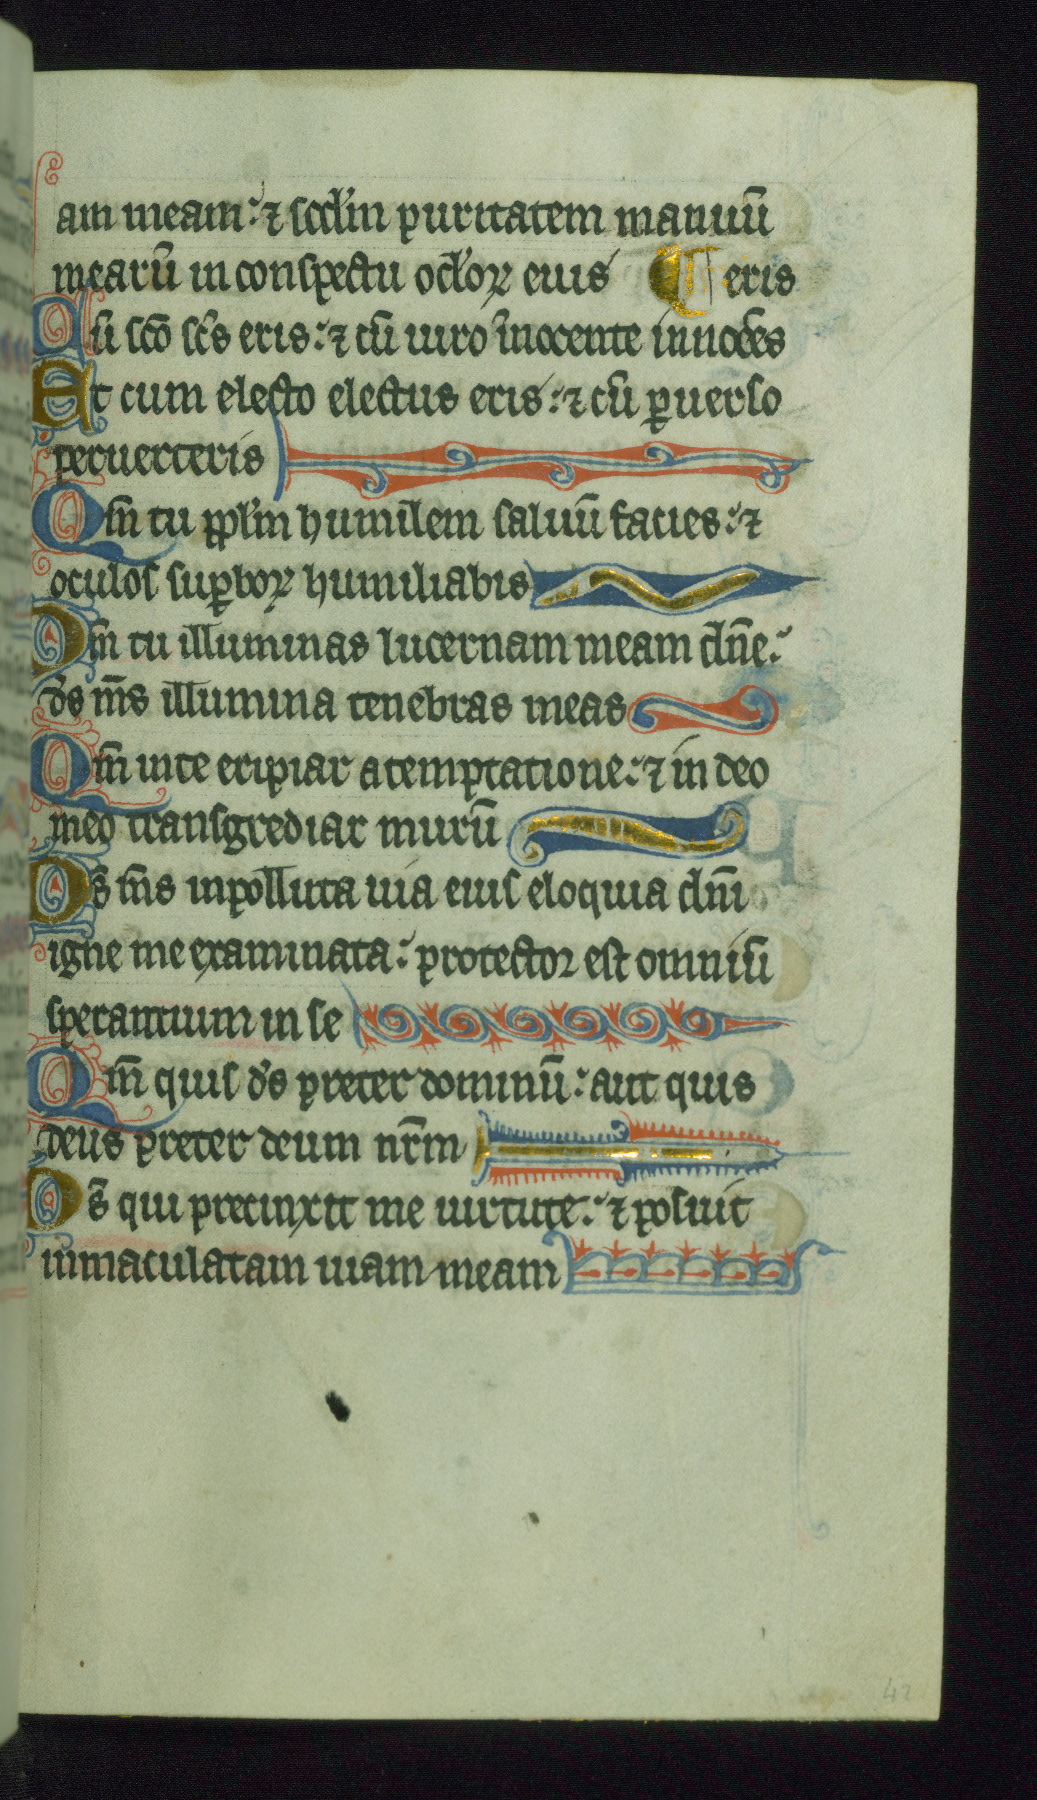 am meam: ⁊ scd̄m puritatem manuū
mearū in conspectu oc̄loꝝ eius ¶ eris
Cū sc̄o sc̄s eris: ⁊ cū uiro īnocente innocēs
Et cum electo electus eris: ⁊ cū ꝑuerso
peruerteris
Qm̄ tu ppl̄m humilem saluū facies: ⁊
oculos suꝑboꝝ humiliabis
Qm̄ tu illuminas lucernam meam dn̄e:
ds̄ ms̄ illumina tenebras meas
Qm̄ in te eripiar a temptatione: ⁊ in deo
meo transgrediar murū
Ds̄ ms̄ inpolluta uia eius eloquia dn̄i
igne me examinata: protector est omniū
sperantium in se
Qm̄ quis ds̄ preter dominū: aut quis
deus preter deum nr̄m
Ds̄ qui precinxit me uirtute: ⁊ posuit
inmaculatam uiam meam
42